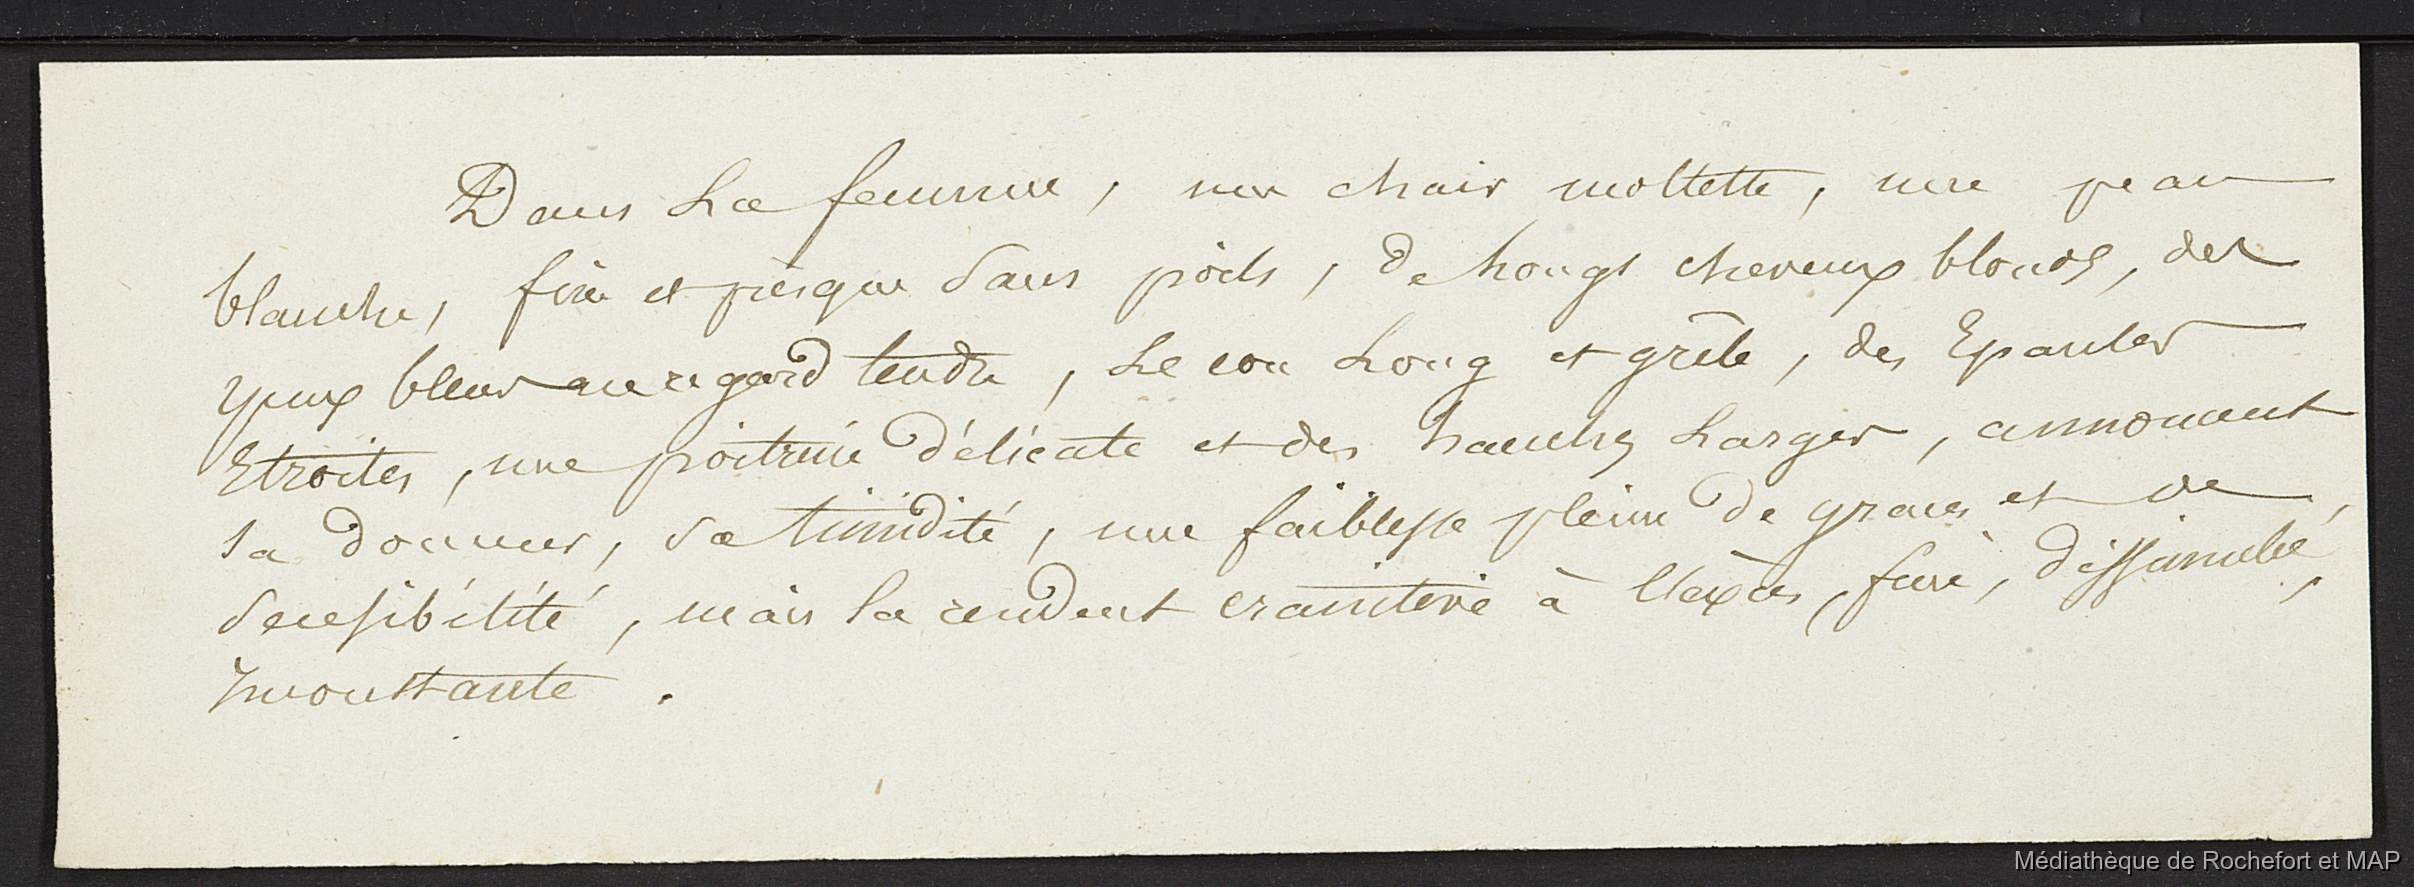 Dans La femme, une chair mollette, une peau
blanche, fine et presque sans poils, de Longs cheveux blonds, des
yeux bleus au regard tendre, Le cou Long et grêle, des Epaules
Etroites, une poitrine délicate et des hanches Larges, annoncent
sa douceur, sa timidité, une faiblesse pleine de graces et de
sensibilité, mais la rendent craintive à l'excès, fine, dissimulée,
Inconstante.
Médiathèque de Rochefort et MAP